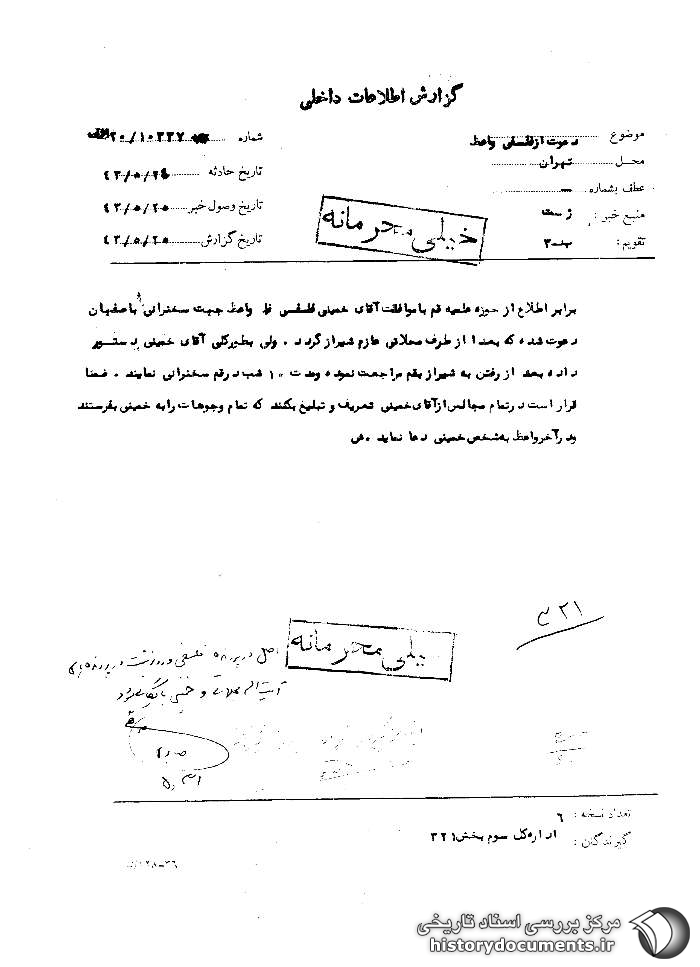 گزارش اطلاعات داخلی
موضوع دعوت ازفلسفی واعظ
محل تهران
عطف بشماره —
منبع خبر:
تقویم: ب-۳
شماره ۲۰/۱۰۳۳۷ الف
تاریخ حادثه ۴۳/۵/۲۴
تاریخ وصول خبر ۴۳/۵/۲۵
تاریخ گزارش ۴۳/۵/۲۵
خیلی محرمانه
برابر اطلاع از حوزه علمیه قم باموافقت آقای خمینی فلسفی واعظ جهت سخنرانی باصفهان
دعوت شده که بعدا از طرف محلاتی عازم شیراز گردد . ولی بطورکلی آقای خمینی دستور
داده بعد از رفتن به شیراز بقم مراجعت نموده ومدت ۱۰ شب درقم سخنرانی نمایند . ضمنا
قرار است درتمام مجالس ازآقای خمینی تعریف و تبلیغ بکنند که تمام وجوهات رابه خمینی بفرستند
ودرآخرواعظ به شخص خمینی دعا نماید .ش
۳۲۱
یلی محرمانه
اصل در پرونده فلسفی و رونوشت در پرونده‌های
آیت اله محلاتی و خمینی بایگانی شود
تعداد نسخه: ۶
گیرندگان: اداره کل سوم بخش ۳۲۱
مرکز بررسی اسناد تاریخی
historydocuments.ir